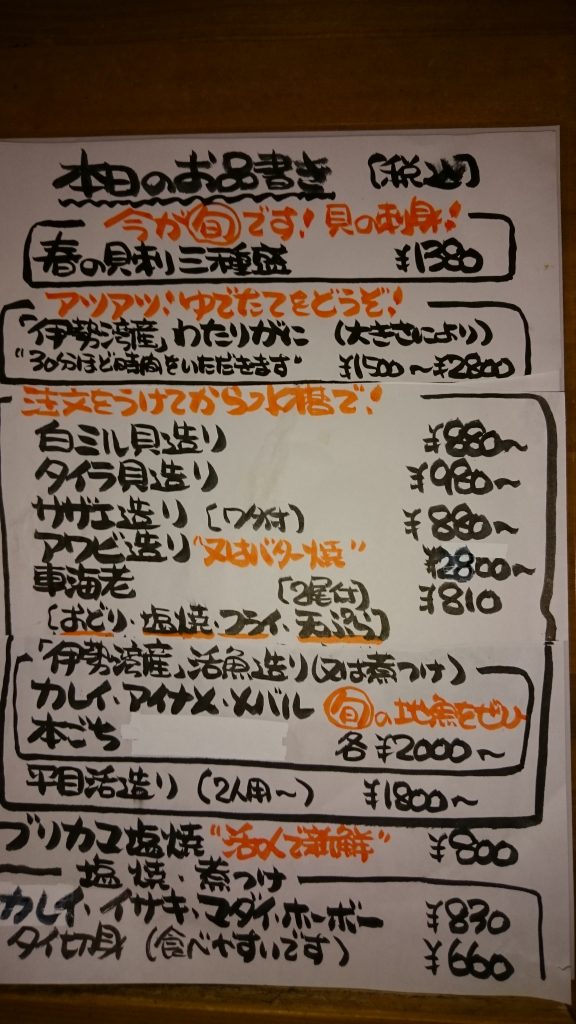 本日のお品書き [税込]
今が旬です! 貝の刺身!
春の貝刺三種盛 ¥1380
アツアツ!ゆでたてをどうぞ!
「伊勢湾産」わたりがに (大きさにより)
"30分ほど時間をいただきます" ¥1500〜¥2800
注文をうけてから水槽で!
白ミル貝造り ¥880〜
タイラ貝造り ¥980〜
サザエ造り [ワタ付] ¥880〜
アワビ造り "又はバター焼" ¥2800〜
車海老 [2尾付] ¥810
[おどり・塩焼・フライ・天ぷら]
「伊勢湾産」活魚造り(又は煮つけ)
カレイ・アイナメ・メバル 旬の地魚をぜひ
本ごち 各¥2000〜
平目活造り (2人用〜) ¥1800〜
ブリカマ塩焼 "活〆で新鮮" ¥800
塩焼・煮つけ
カレイ・イサキ・マダイ・ホーボー ¥830
タイ切身 (食べやすいです) ¥660